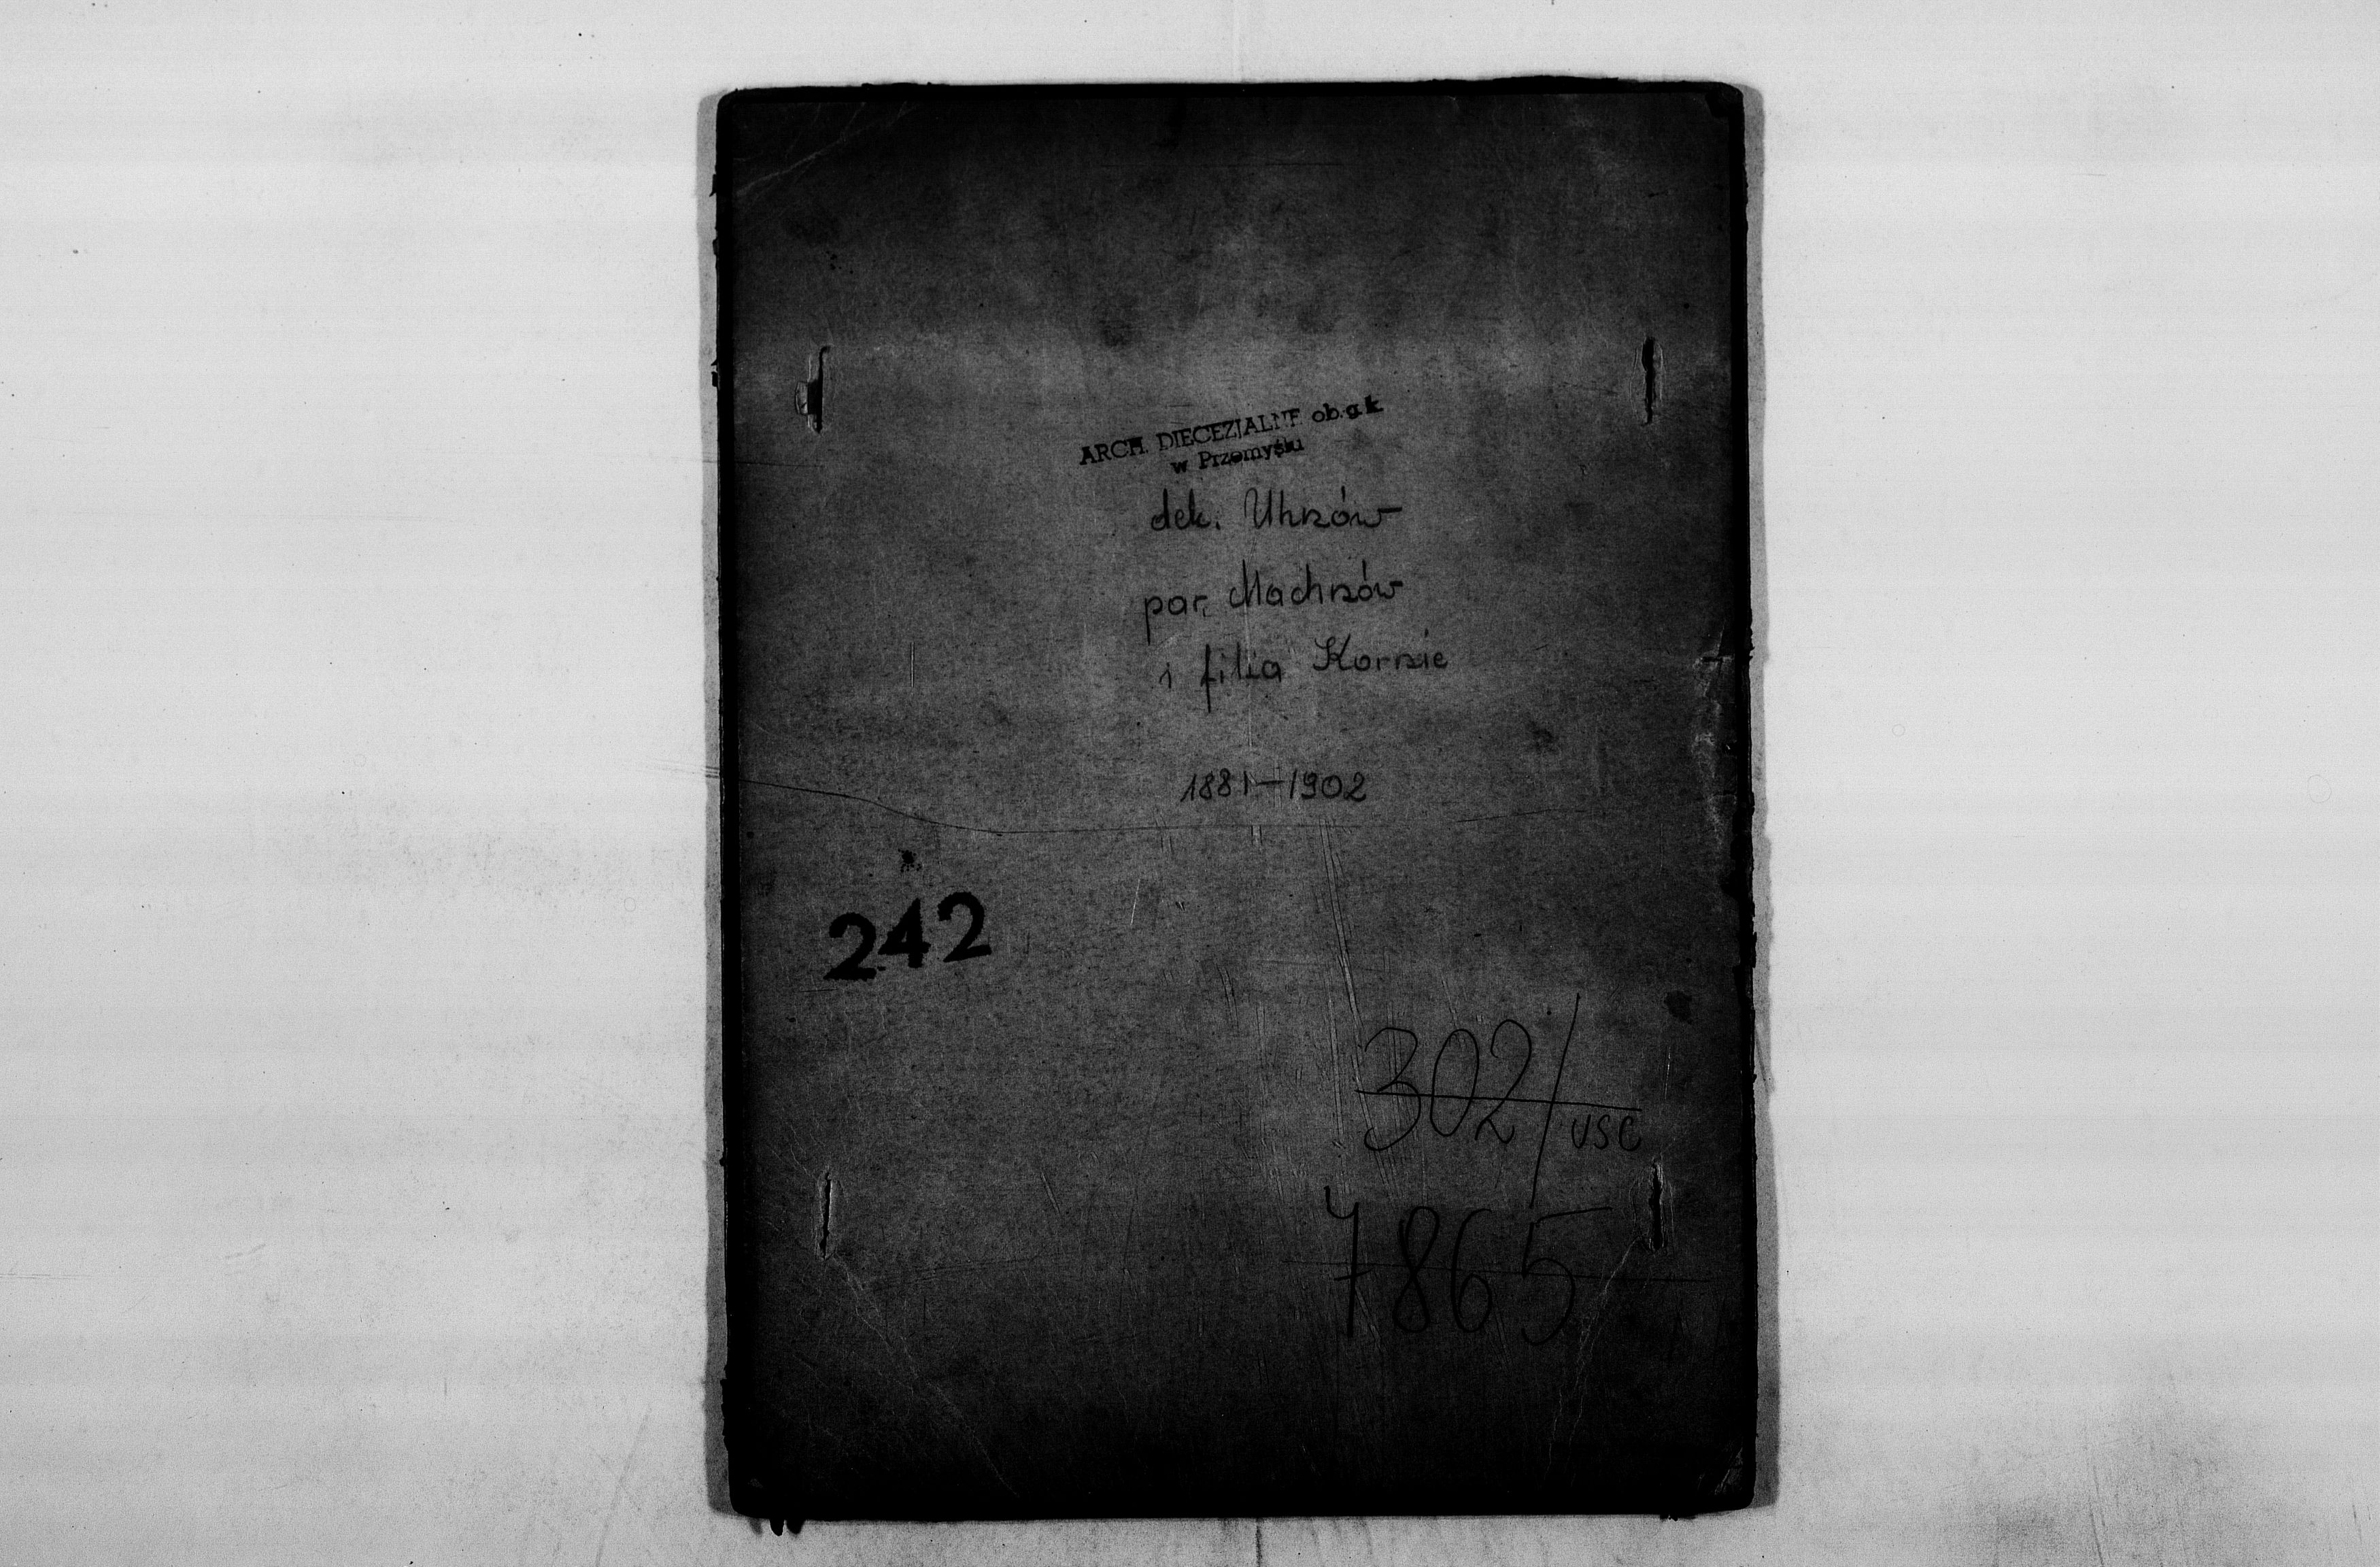 ARCH. DIECEZJALNE ob. g. k.
w Przemyślu
dek. Uhnów
par. Machnów
i filia Kornie
1881–1902
242
302/USC
7865